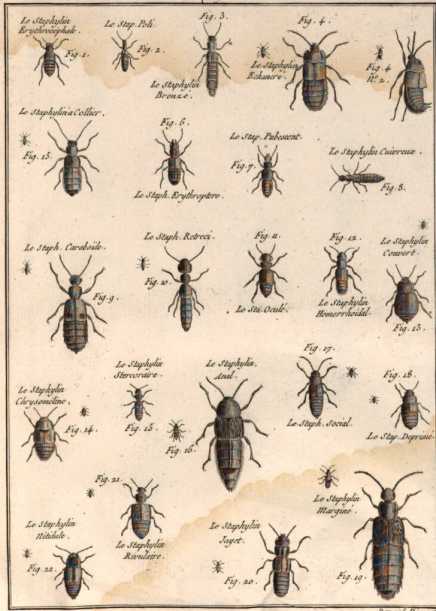 Le Staphylin
Erythrocephale.
Fig. 1.
Le Stap. Poli.
Fig. 2.
Fig. 3.
Le Staphylin
Bronzé.
Fig. 4.
Le Staphylin
Echancré.
Fig. 4
N.º 2.
Le Staphylin a Collier.
Fig. 15.
Fig. 6.
Le Staph. Erythroptere.
Le Stap. Pubescent.
Fig. 7.
Le Staphylin Cuivreux.
Fig. 8.
Le Staph. Caraboïde.
Fig. 9
Le Staph. Retreci.
Fig. 10.
Fig. 11.
Le Sta. Oculé.
Fig. 12.
Le Staphylin
Hemorrhoïdal.
Le Staphylin
Couvert.
Fig. 13.
Le Staphylin
Chrysomeline.
Fig. 14
Le Staphylin
Stercoraire.
Fig. 15.
Le Staphylin
Anal.
Fig. 16.
Fig. 17.
Le Staph. Social.
Fig. 18.
Le Stap. Deprimé.
Fig. 21.
Le Staphylin
Rivulaire.
Le Staphylin
Nitidule.
Fig. 22.
Le Staphylin
Jayet.
Fig. 20.
Le Staphylin
Marginé.
Fig. 19.